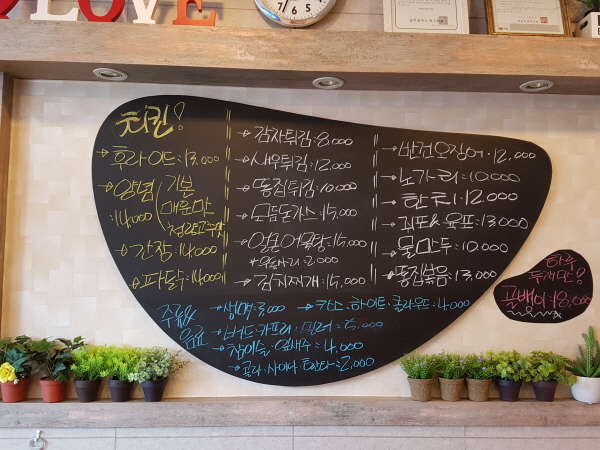 LOVE
치킨!
→후라이드:13,000
→양념:14,000
기본
매운맛
청량고추맛
→간장:14,000
→파닭:14,000
→감자튀김:8,000
→새우튀김:12,000
→똥집튀김:10,000
→모듬돈가스:15,000
→얼큰어묵탕:15,000
*우동사리:2,000
→김치찌개:15,000
→반건오징어:12,000
→노가리:10,000
→한치:12,000
→쥐포&육포:13,000
→물만두:10,000
→똥집볶음:13,000
주류&음료
→생맥:3,000
→카스·하이트·클라우드:4,000
→버드·카프리·밀러:5,000
→참이슬·잎새주:4,000
→콜라·사이다·환타:2,000
하루
두개만!
골뱅이:18,000